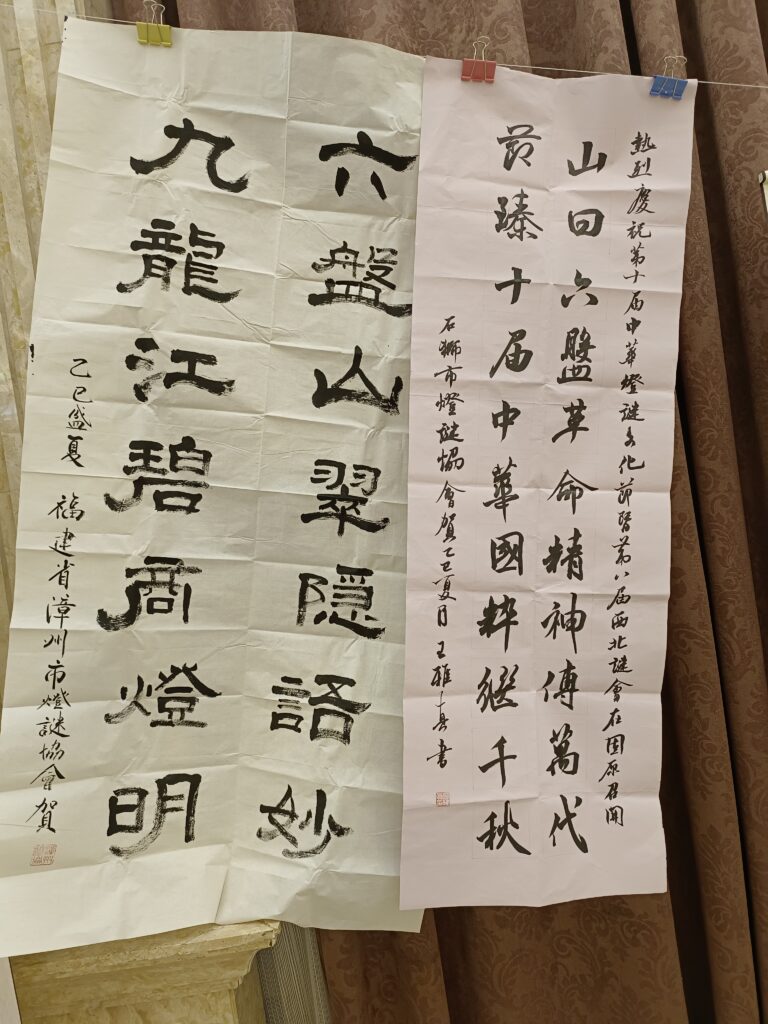 熱烈慶祝第十届中華燈謎文化節暨第八届西北謎會在固原召開
山曰六盤革命精神傳萬代
節臻十届中華國粹繼千秋
石獅市燈謎協會賀乙巳夏月 王 書
六盤山翠隐語妙
九龍江碧商燈明
乙巳盛夏 福建省漳州市燈謎協會賀